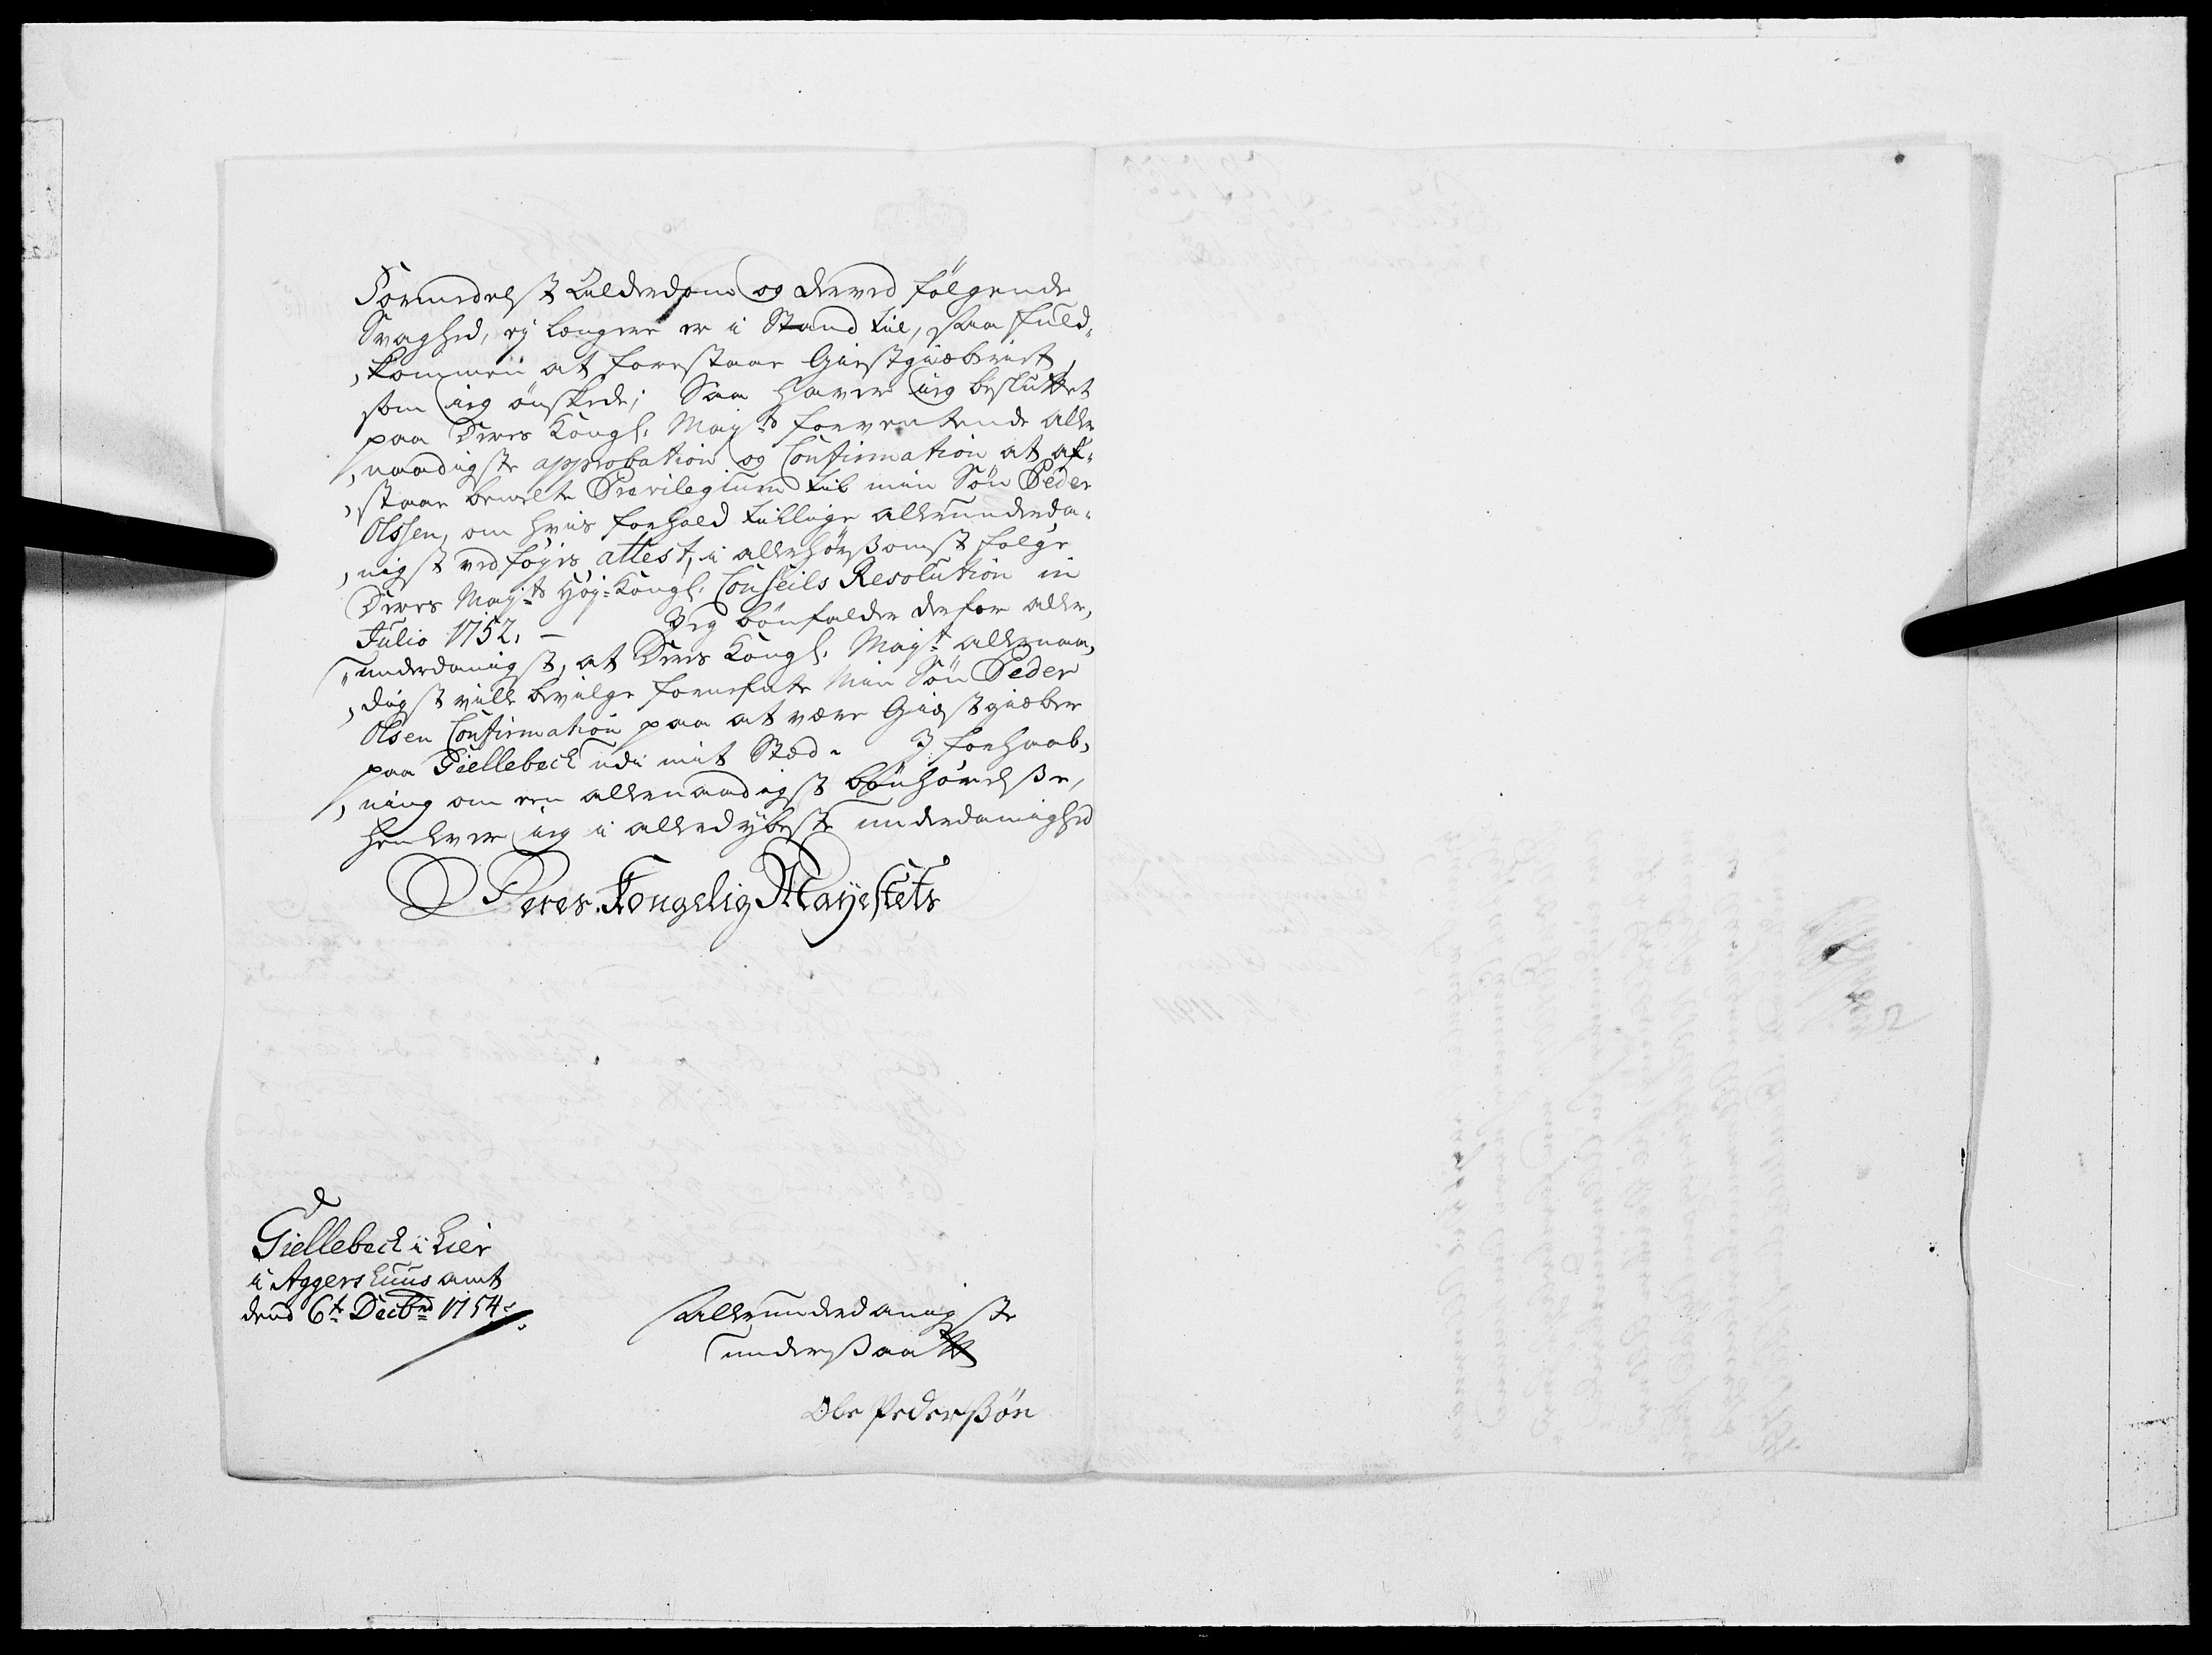 Formedelst Alderdom og derved følgende
Svaghed, ej længere er i Stand til, saa fuld¬
kommen at forestaae Giestgiæberiet,
som ieg ønskede; Saa haver ieg besluttet
paa Deres Kongl. May:ts forventende aller
naadigste approbation og Confirmation at af¬
staae bemelte Previlegium til min Søn Peder
Olssen, om hvis forhold tillige allerunderda¬
nigst vedføyes attest, i allerhørsomst følge
Deres May:ts Høy-Kongl. Conseils Resolution in
Julio 1752. — Jeg bønfalder derfor aller¬
underdanigst, at Deres Kongl. May:t allernaa¬
digst ville bevilge fornefnte Min Søn Peder
Olsen Confirmation paa at være Giæstgiæber
paa Giellebeck udi mit Stæd. I forhaab¬
ning om een allernaadigst bønhørelse,
henlever ieg i allerdybeste underdanighed
Deres Kongelig Mayestets
Giellebeck i Lier
i Aggershuus amt
dend 6te Decbr 1754.
allerunderdanigste
undersaatt
Ole Pedersøn